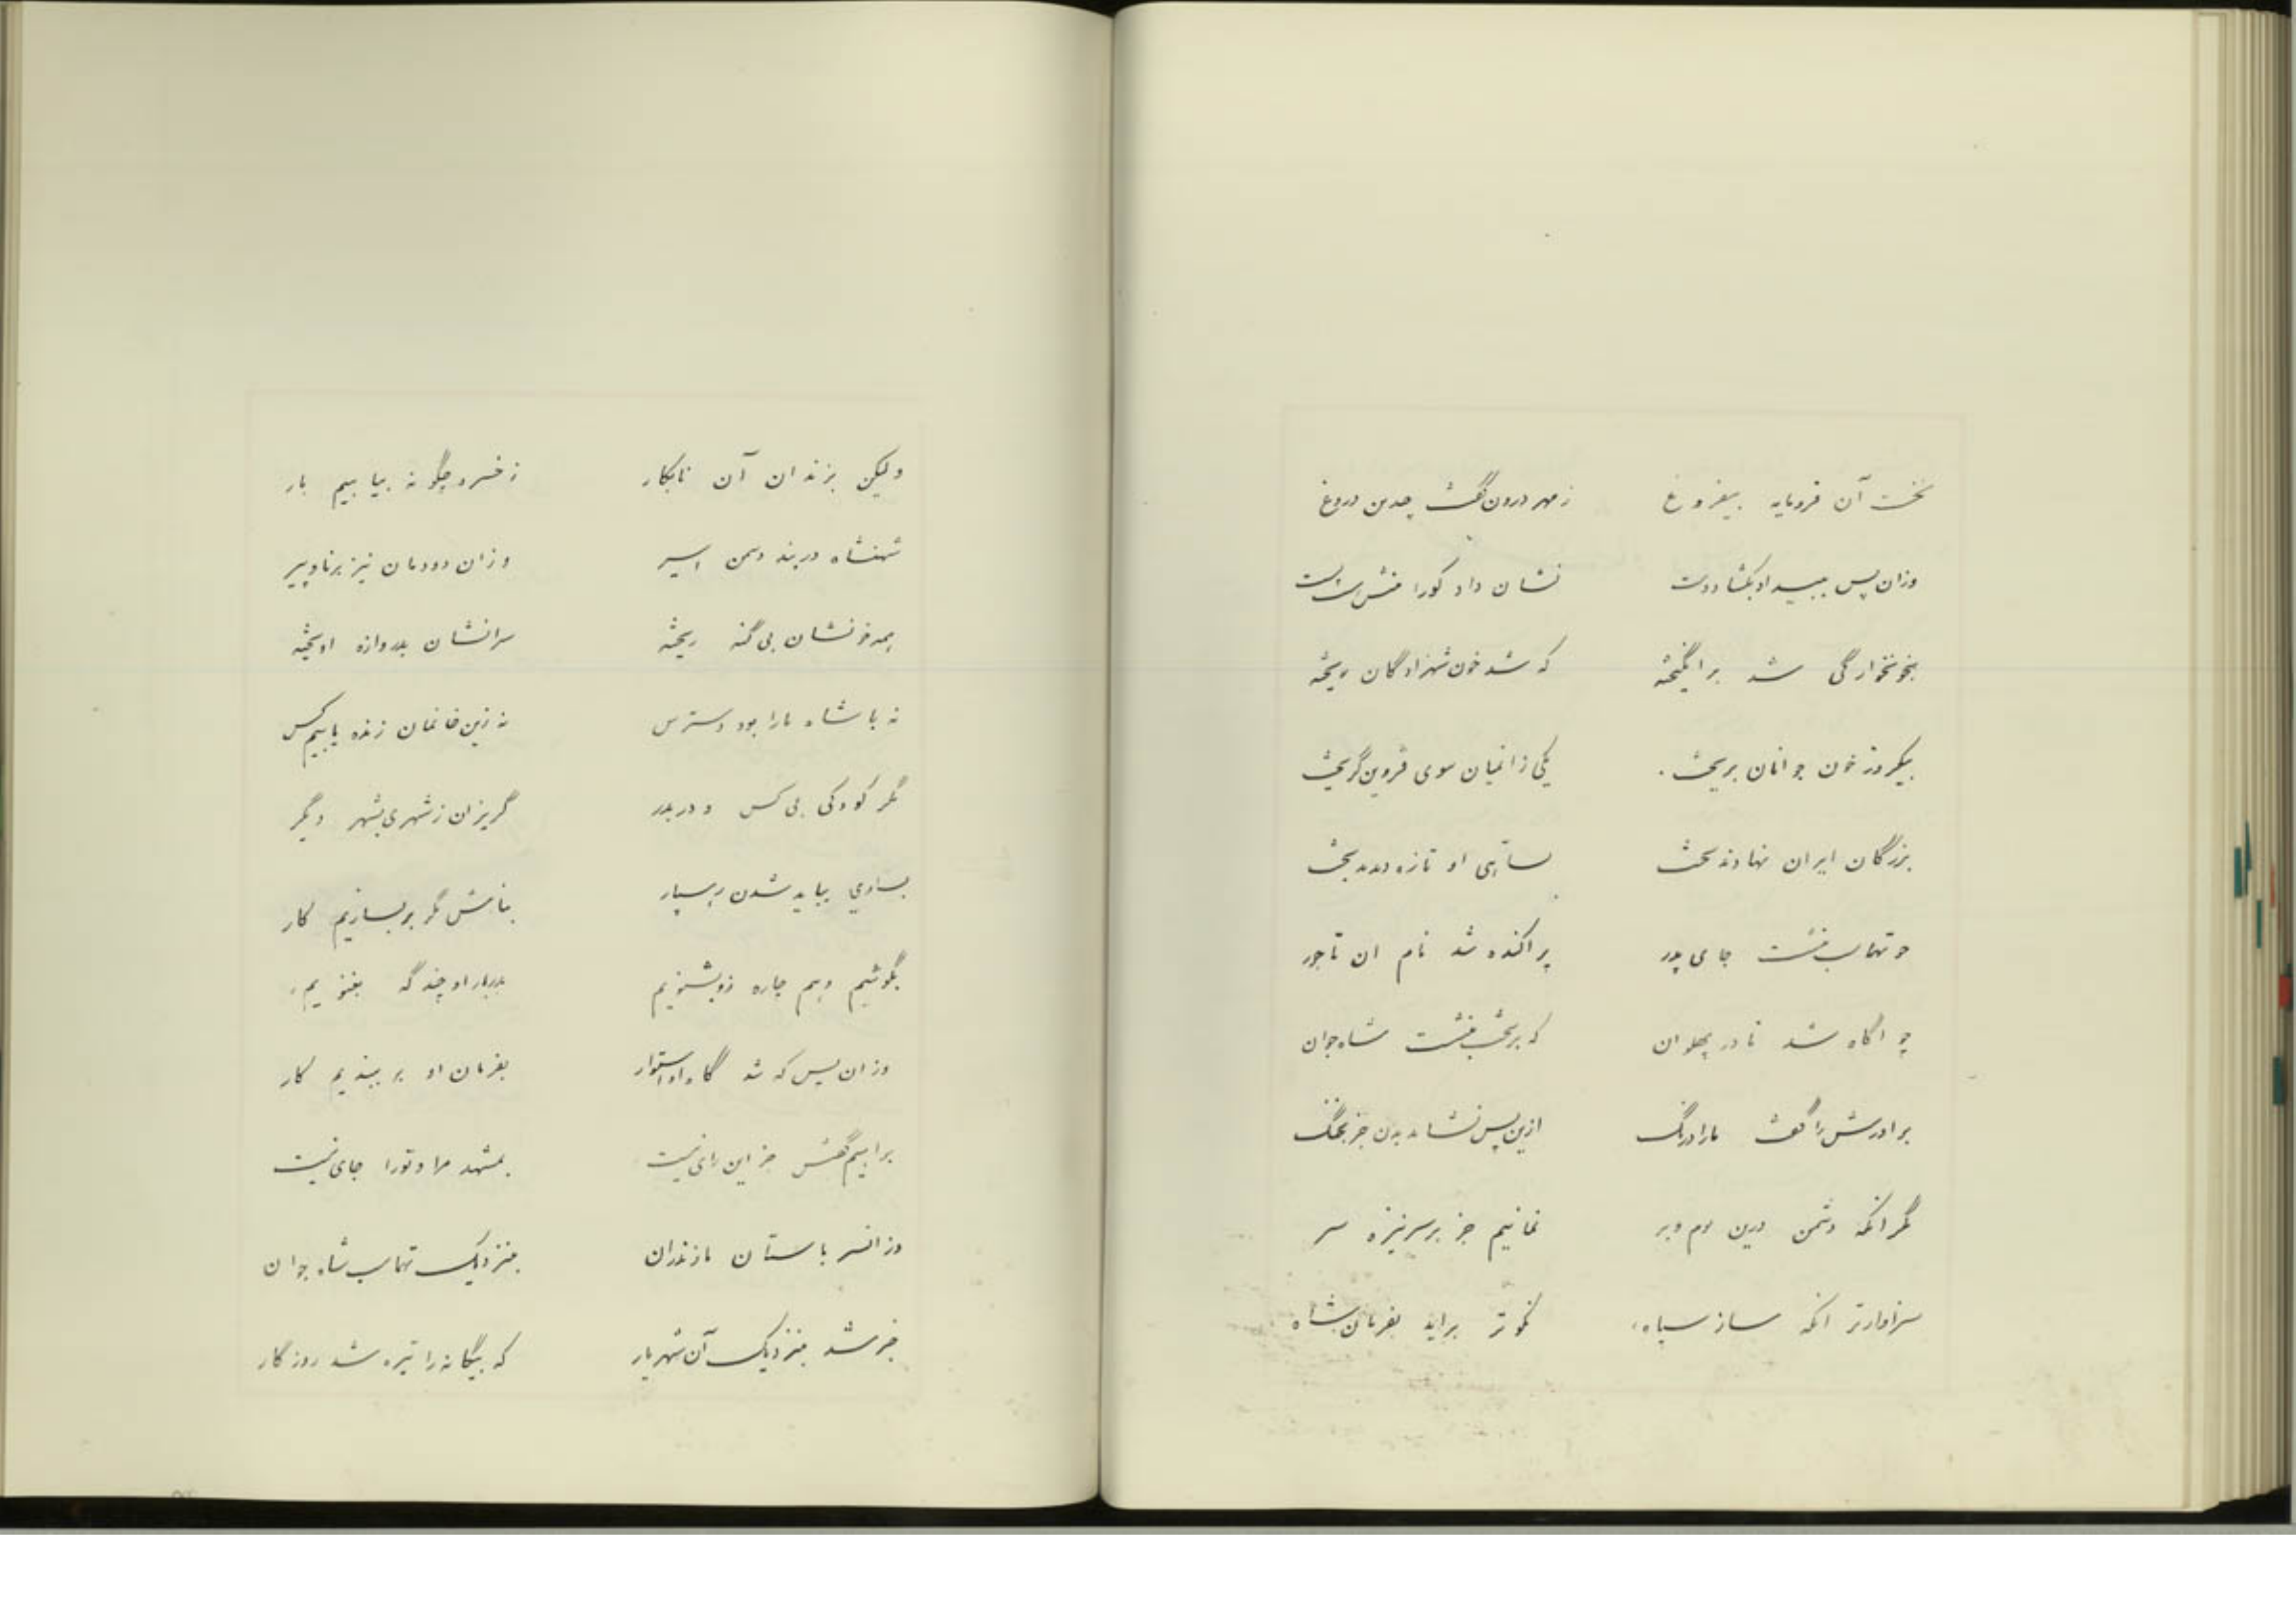 نخست آن فرومایه بیفروغ زمهر درون گفت چندین دروغ
وزان پس ببیداد بکشاد دست نشان داد کورا منش است
بخونخوارگی شد برانگیخته که شد خون شهزادگان ریخته
بیکروز خون جوانان بریخت یکی زانمیان سوی قزوین گریخت
بزرگان ایران نهادند تخت شاهی او تازه دیدند بخت
چو تهماسب بنشست جای پدر پراکنده شد نام ان تاجور
چو اگاه شد نادر پهلوان که بر تخت بنشست شاه جوان
برادرش را گفت مارا درنگ ازین پس نشاید بدن جز بجنگ
مگر آنکه دشمن درین بوم وبر نمانیم جز بر سر نیزه سر
سزاوارتر انکه ساز سپاه نکوتر براید بفرمان شاه
ولیکن بزندان آن نابکار زخسرو چگونه بیابیم بار
شهنشاه در بند دشمن اسیر وزان دودمان نیز برنا وپیر
همه خونشان بی گنه ریخته سرانشان بدروازه اویخته
نه با شاه مارا بود دسترس نه زین خانمان زنده یابیم کس
مگر کودکی بی کس و دربدر گریزان زشهری بشهر دگر
بساری بباید شدن رهسپار بنامش مگر بربسازیم کار
بگوئیم وهم چاره زو بشنویم بدربار او چندگه بغنویم
وزان پس که شد گاه او استوار بفرمان او بر ببندیم کار
براهیم گفتش جز این رای نیست بمشهد مرا وتورا جای نیست
وزانسر باستان مازندران بنزدیک تهماسب شاه جوان
خبر شد بنزدیک آن شهریار که بیگانه را تیره شد روزگار